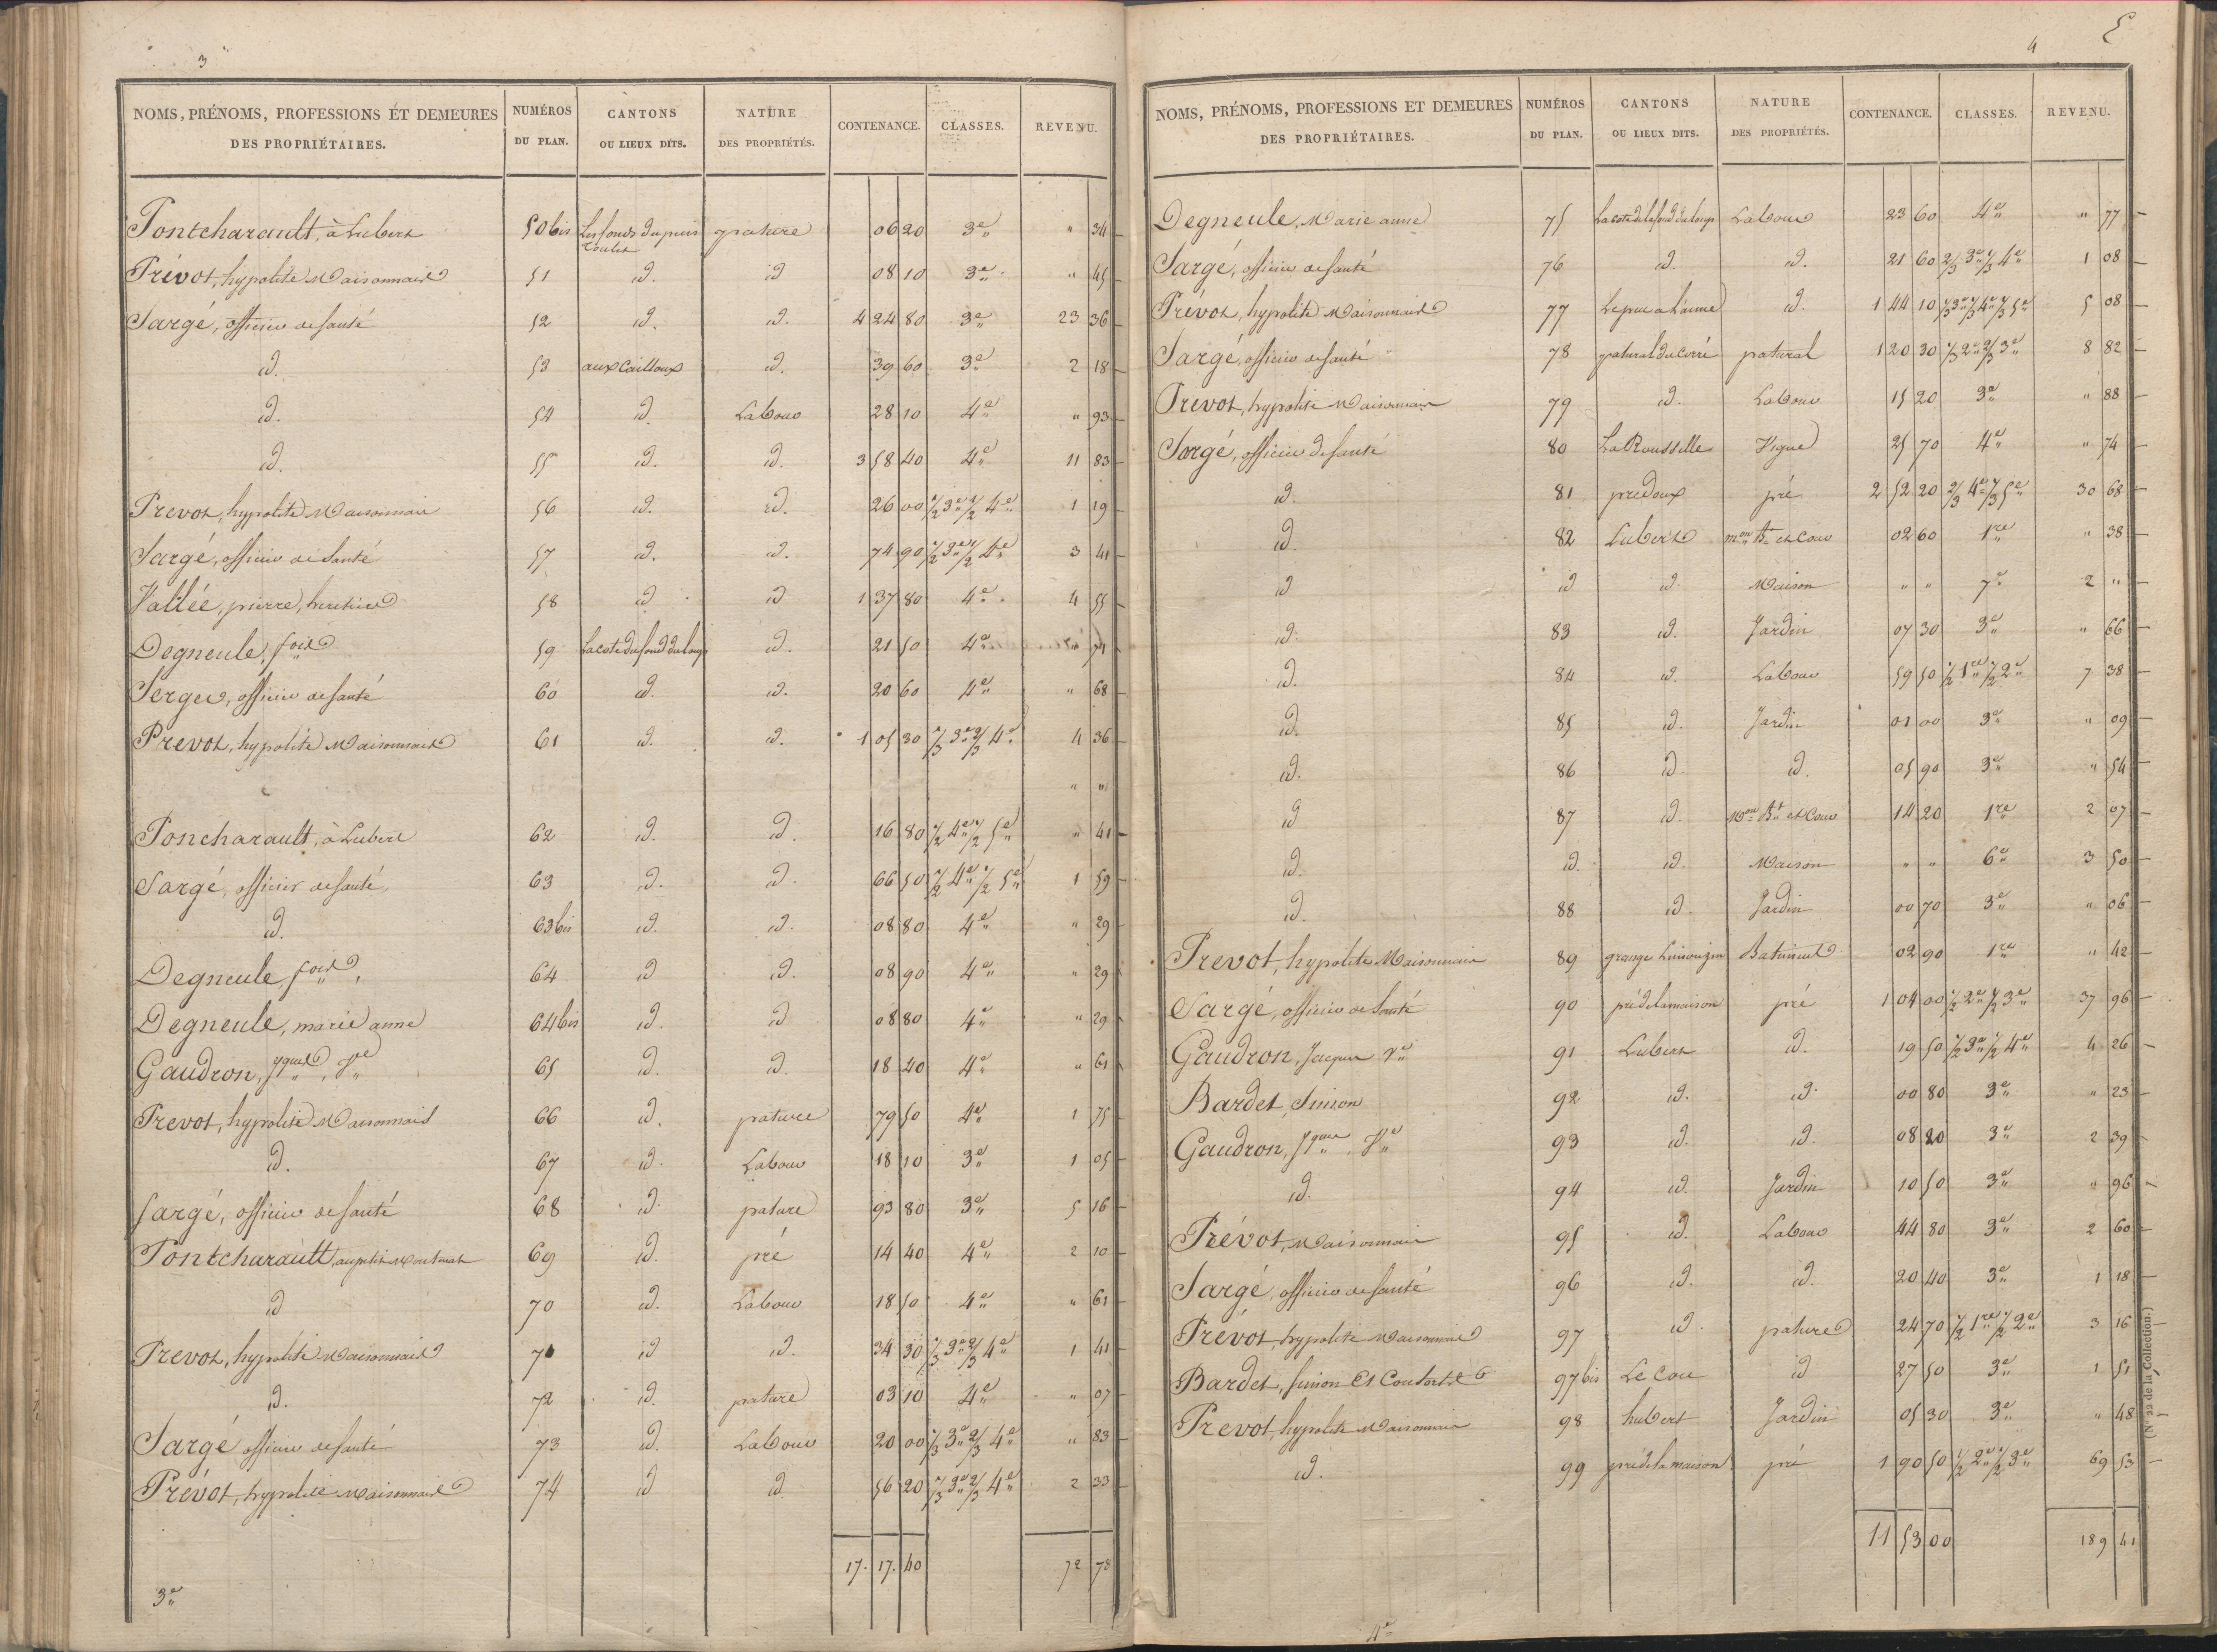 3
NOMS, PRÉNOMS, PROFESSIONS ET DEMEURES DES PROPRIÉTAIRES. NUMÉROS DU PLAN. CANTONS OU LIEUX DITS. NATURE DES PROPRIÉTÉS. CONTENANCE. CLASSES. REVENU.
Pontcharault, à Lubert 50 bis Les fonds du puis pature 06 20 3e " 34
Prévot, hypolite Maisonnais 51 id. id 08 10 3e " 45
Sargé, officier de santé 52 id. id. 4 24 80 3e 23 36
id. 53 aux Cailloux id. 39 60 3e 2 18
id. 54 id. Labour 28 10 4e " 93
id. 55 id. id. 3 58 40 4e 11 83
Prevot, hypolite Maisonnais 56 id. id. 26 00 1/2 3e 1/2 4e 1 19
Sargé, officier de Santé 57 id. id. 74 90 1/2 3e 1/2 4e 3 41
Vallée, pierre, heritier 58 id id 1 37 80 4e 4 55
Degneule, foix 59 La cote du fond du loup id. 21 50 4e " 71
Serger, officier de santé 60 id. id. 20 60 4e " 68
Prevot, hypolite Maisonnais 61 id. id. 1 05 30 1/3 3e 2/3 4e 4 36
" "
Poncharault, à Lubert 62 id. id. 16 80 1/2 4e 1/2 5e " 41
Sargé, officier de santé, 63 id. id. 66 50 1/2 4e 1/2 5e 1 59
id. 63 bis id. id. 08 80 4e " 29
Degneule, foix, 64 id id. 08 90 4e " 29
Degneule, marie anne 64 bis id. id 08 80 4e " 29
Gaudron, Jques, Ve 65 id. id. 18 40 4e " 61
Prevot, hypolite Maisonnais 66 id. pature 79 50 4e 1 75
id. 67 id. Labour 18 10 3e 1 05
Sargé, officier de santé 68 id. pature 93 80 3e 5 16
Pontcharault, au petit Montmat 69 id. pré 14 40 4e 2 10
id 70 id. Labour 18 50 4e " 61
Prevot, hypolite Maisonnais 71 id id. 34 30 1/3 3e 2/3 4e 1 41
id. 72 id. pature 03 10 4e " 07
Sargé officier de santé 73 id. Labour 20 00 1/3 3e 2/3 4e " 83
Prévot, hypolite Maisonnais 74 id id 56 20 1/3 3e 2/3 4e 2 33
17. 17. 40 72 78
3e
4
NOMS, PRÉNOMS, PROFESSIONS ET DEMEURES DES PROPRIÉTAIRES. NUMÉROS DU PLAN. CANTONS OU LIEUX DITS. NATURE DES PROPRIÉTÉS. CONTENANCE. CLASSES. REVENU.
Degneule, Marie anne 75 La cote de la fond du loup Labour 23 60 4e " 77
Sargé, officier de santé 76 id. id. 21 60 2/3 3e 1/3 4e 1 08
Prévot, hypolite Maisonnais 77 id. 1 44 10 1/3 3e 1/3 4e 1/3 5e 5 08
Sargé, officier de santé 78 patural du Carré patural 1 20 30 1/3 2e 2/3 3e 8 82
Prevot, hypolite Maisonnais 79 id. Labour 15 20 3e " 88
Sargé, officier de santé 80 La Rousselle Vigne 25 70 4e " 74
id. 81 predoux pré 2 52 20 2/3 4e 1/3 5e 30 68
id. 82 Lubert mon Bt et Cour 02 60 1re " 38
id id id. Maison " " 7e 2 "
id. 83 id. Jardin 07 30 3e " 66
id. 84 id. Labour 59 50 1/2 1re 1/2 2e 7 38
id. 85 id. Jardin 01 00 3e " 09
id. 86 id id. 05 90 3e " 54
id 87 id. Mon Bt et Cour 14 20 1re 2 07
id. id. id. Maison " " 6e 3 50
id. 88 id. Jardin 00 70 3e " 06
Prevot, hypolite Maisonnais 89 grange Limouzin Batiment 02 90 1re " 42
Sargé, officier de Santé 90 pré de la maison pré 1 04 00 1/2 2e 1/2 3e 37 96
Gaudron, Jacques Ve 91 Lubert id. 19 50 1/2 3e 1/2 4e 4 26
Bardet, Simon 92 id. id. 00 80 3e " 23
Gaudron, Jques, Ve 93 id. id. 08 20 3e 2 39
id. 94 id. Jardin 10 50 3e " 96
Prévot, Maisonnais 95 id. Labour 44 80 3e 2 60
Sargé, officier de santé 96 id. id. 20 40 3e 1 18
Prévot, hypolite Maisonnais 97 id. pature 24 70 1/2 1re 1/2 2e 3 16
Bardet, simon Et 97 bis Le Cou id 27 50 3e 1 51
Prevot, hypolite Maisonnais 98 hubert Jardin 05 30 3e " 48
id. 99 pré de la maison pré 1 90 50 1/2 2e 1/2 3e 69 53
11 53 00 189 41
4e
(N° 22 de la Collection.)